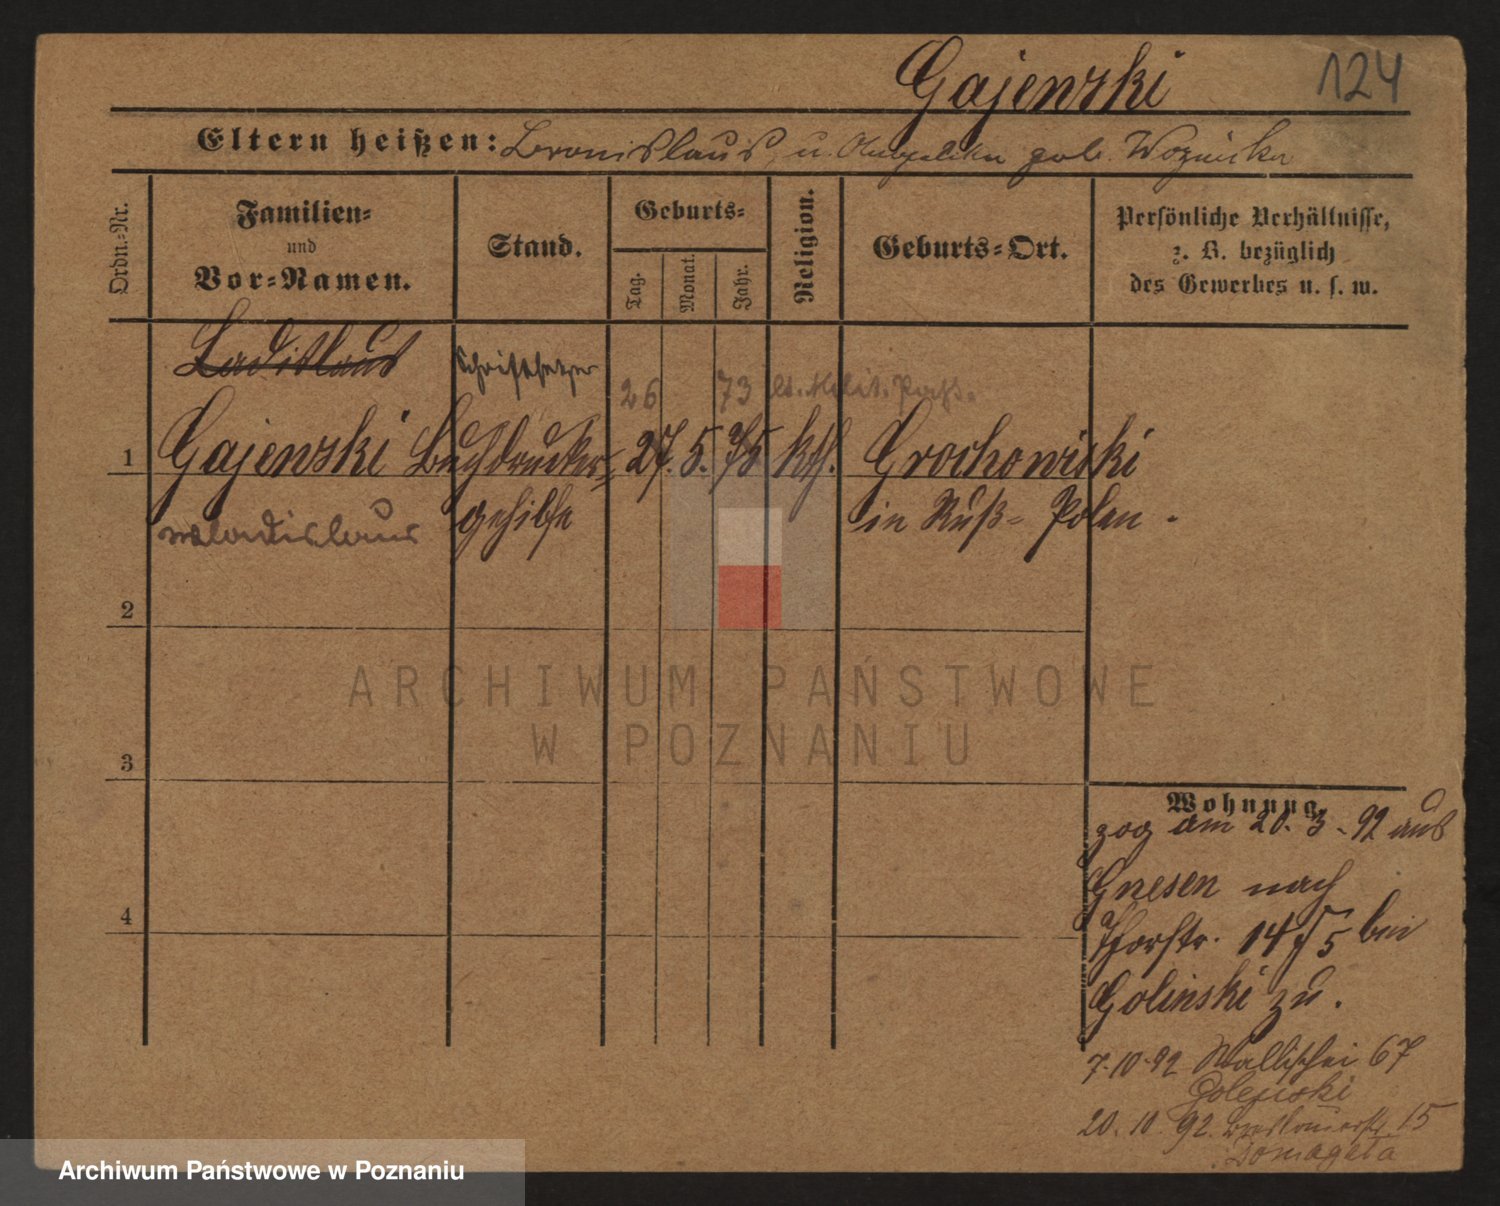 Gajewski 124
Eltern heißen: Bronislaus u. Angelika geb. Woznicka
Ordn.-Nr.
Familien-
und
Vor-Namen.
Stand.
Geburts-
Tag.
Monat.
Jahr.
Religion.
Geburts-Ort.
Persönliche Verhältnisse,
z. B. bezüglich
des Gewerbes u. s. w.
Ladislaus Schriftsetzer
26 73 lt. Milit. Paß.
1 Gajewski Buchdrucker- 27. 5. 75 kth. Grochowiski
Wladislaus gehilfe in Ruß- Polen.
2
3
4
Wohnung.
zog am 20. 3. 92 aus
Gnesen nach
Thorstr. 14/15 bei
Golinski zu.
7.10.92 Wallischei 67
20.10.92. Breslauerstr. 15
Domagała
ARCHIWUM PAŃSTWOWE
W POZNANIU
Archiwum Państwowe w Poznaniu